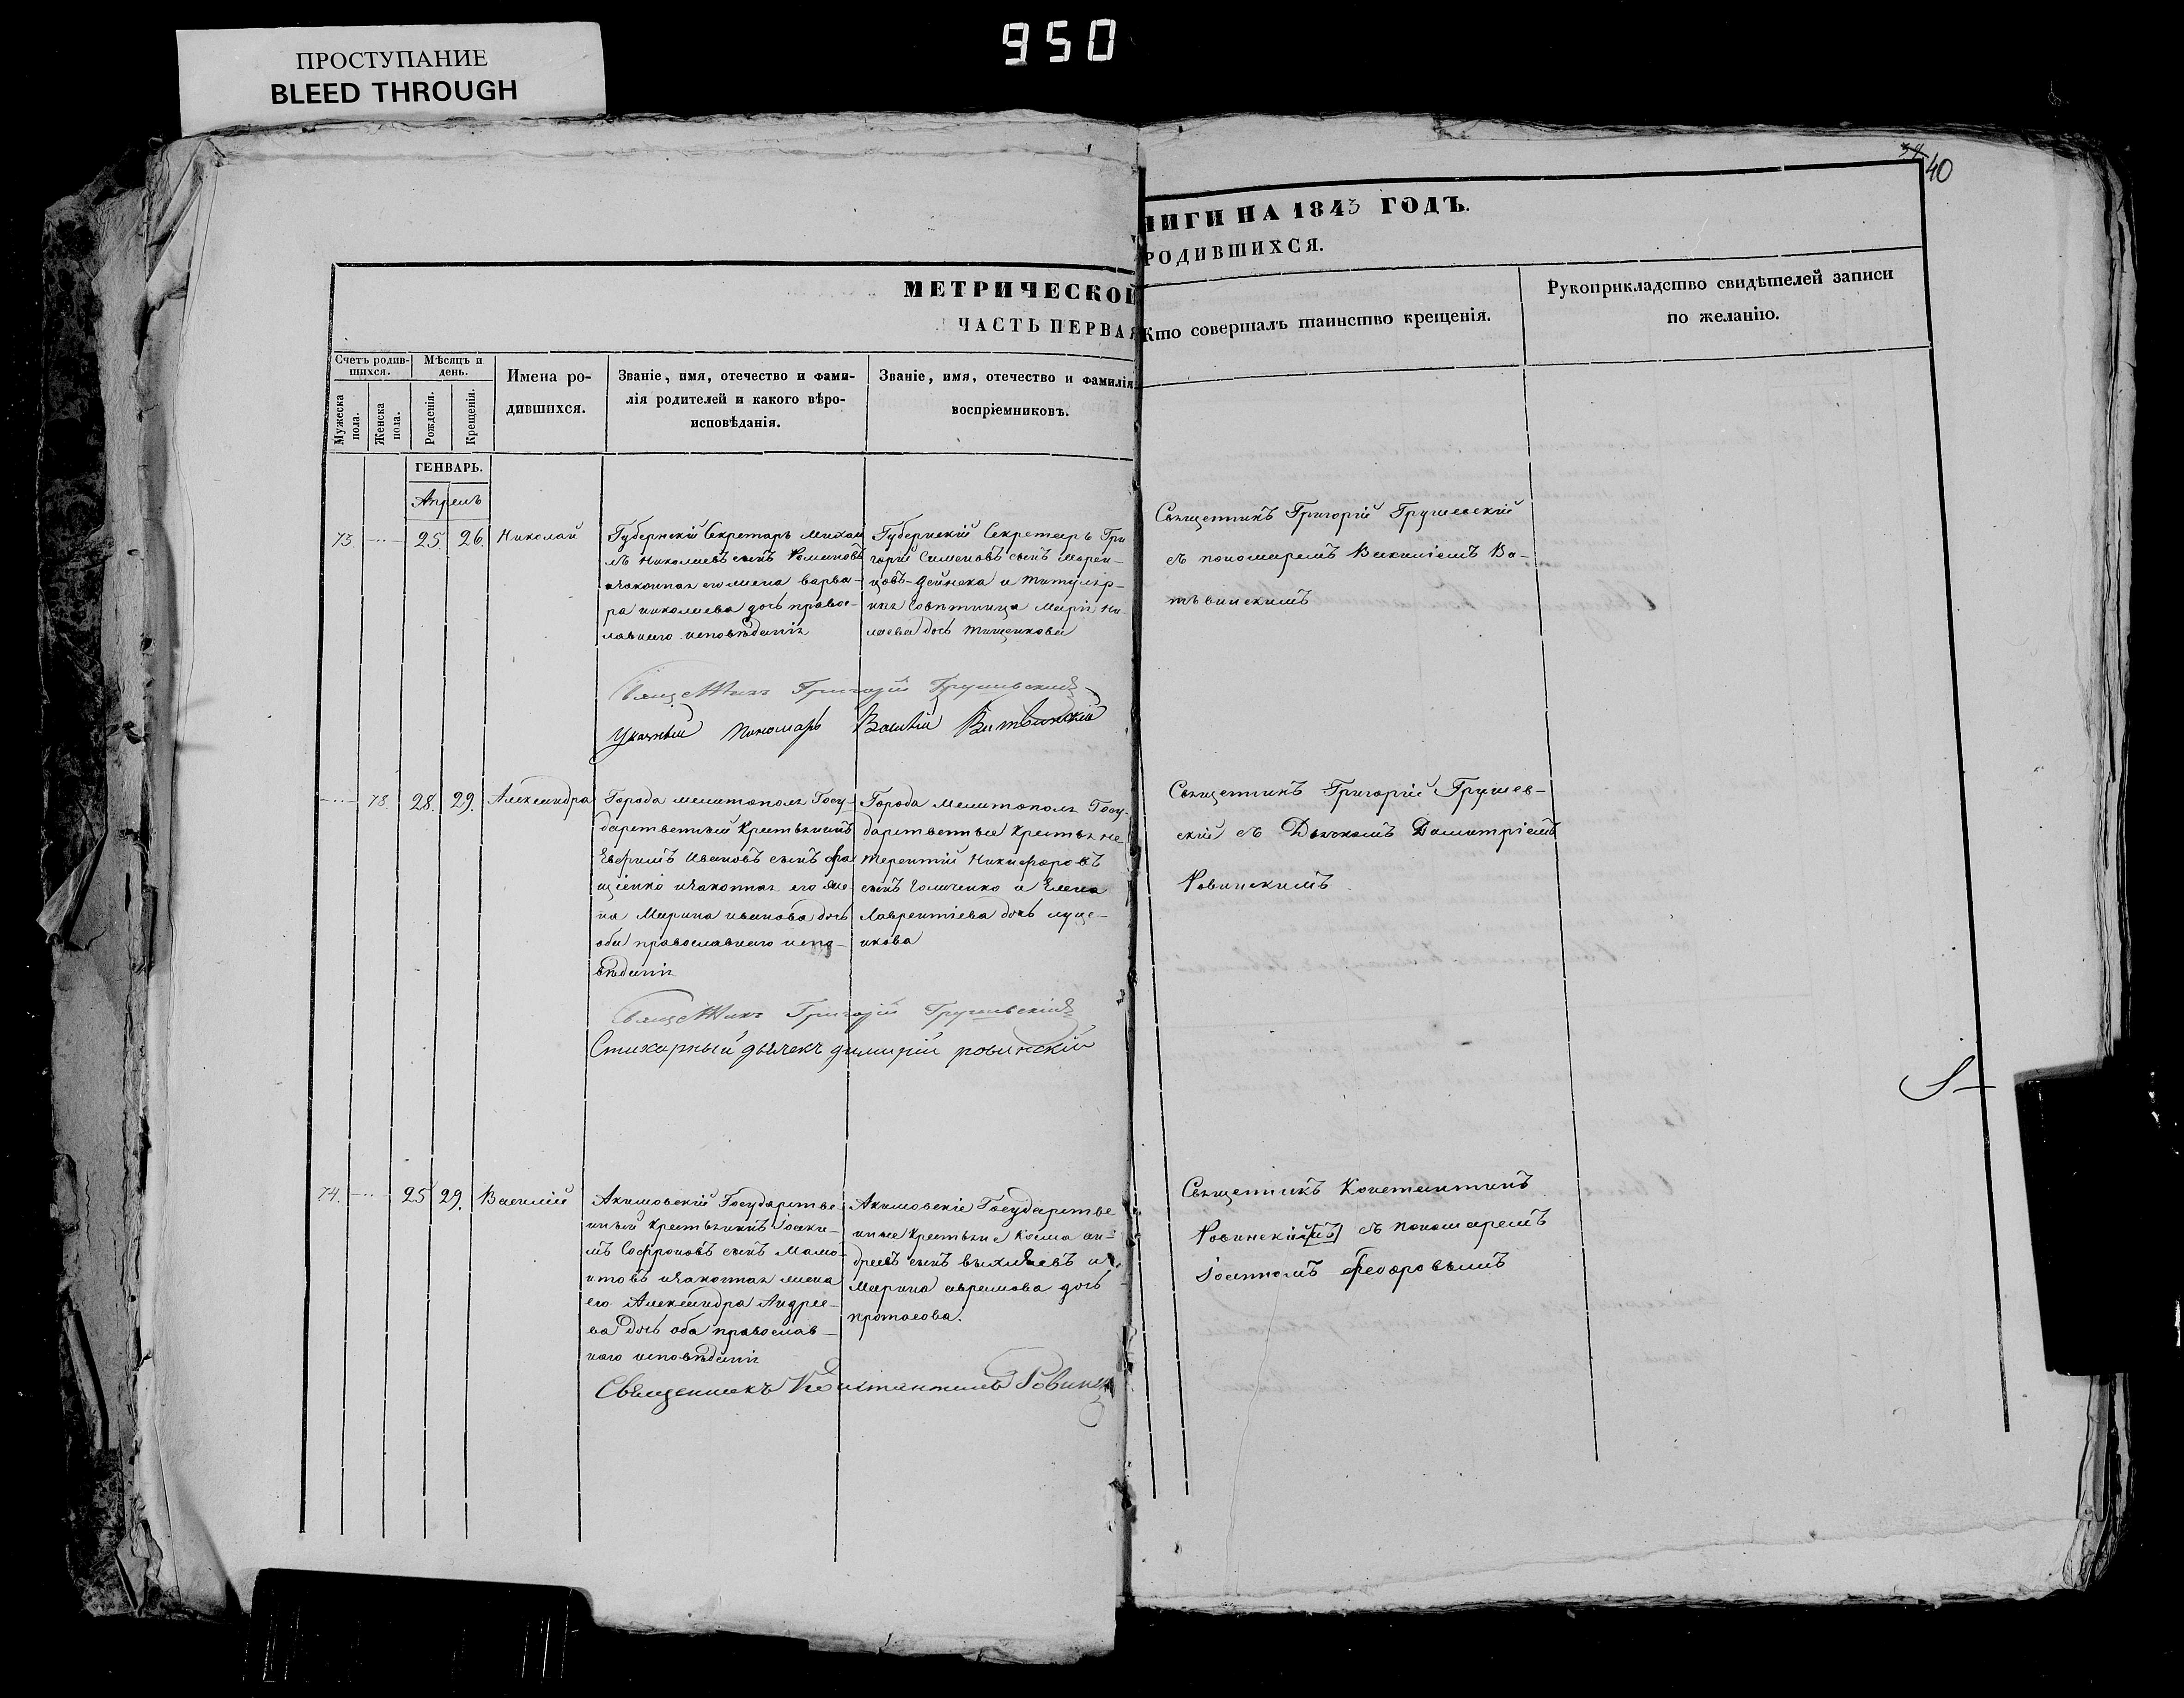 ПРОСТУПАНИЕ
BLEED THROUGH
950
39 40
МЕТРИЧЕСКОЙ
ЧАСТЬ ПЕРВАЯ
Счетъ родив-
шихся.
Мѣсяцъ и
день.
Мужеска
пола.
Женска
пола.
Рожденія.
Крещенія.
Имена ро-
дившихся.
Званіе, имя, отечество и фами-
лія родителей и какого вѣро-
исповѣданія.
Званіе, имя, отечество и фамилія
воспріемниковъ.
НИГИ НА 1843 ГОДЪ.
РОДИВШИХСЯ.
Кто совершалъ таинство крещенія.
Рукоприкладство свидѣтелей записи
по желанію.
ГЕНВАРЬ.
Апрель
73. 25. 26. Николай
Губернскій Секретарь Михаи
лъ Николаевъ сынъ Романовъ
изаконная его жена Варва-
ра николаева дочь правос-
лавнаго исповѣданія
Губернскій Секретарь Гри
горій Симеоновъ сынъ
Дейнека и титуляр-
ная Совѣтница Марія Ни
лаева дочь Тищенкова
Священникъ Григорій Грушевскій
съ пономаремъ Василіемъ Ва-
твинскимъ
Священникъ Григорій Грушевскій
Указный пономарь Василій Витвинскій
78. 28. 29. Александра
Города мелитополя Госу-
дарственный Крестьянинъ
Ефримъ Ивановъ сынъ Фа
щенко изаконная его же
на Марина иванова дочь
оба православнаго испо-
вѣданія
Города Мелитополя Госу-
дарственные Крестьяне
терентій Никифоровъ
сынъ Галиченко и Елена
Лаврентіева дочь луце-
нкова
Священникъ Григорій Грушев-
скій съ Дьячкомъ Димитріемъ
Ровинскимъ
Священникъ Григорій Грушевскій
Стихарный дьячекъ димитрій ровинскій
74. 25 29. Василій
Акимовскій Государстве
нный крестьянинъ Іоаки-
мъ Софроновъ сынъ Мамо-
нтовъ изаконная жена
его Александра Андрее-
ва дочь оба православ-
наго исповѣданія
Акимовскіе Государстве
нные крестьяне Козма ан-
дреевъ сынъ и
Марина аврамова дочь
протасова.
Священникъ Константинъ
Ровинскій[мъ] съ пономаремъ
Іоанномъ Федоровымъ
Священникъ Константинъ Ровинск